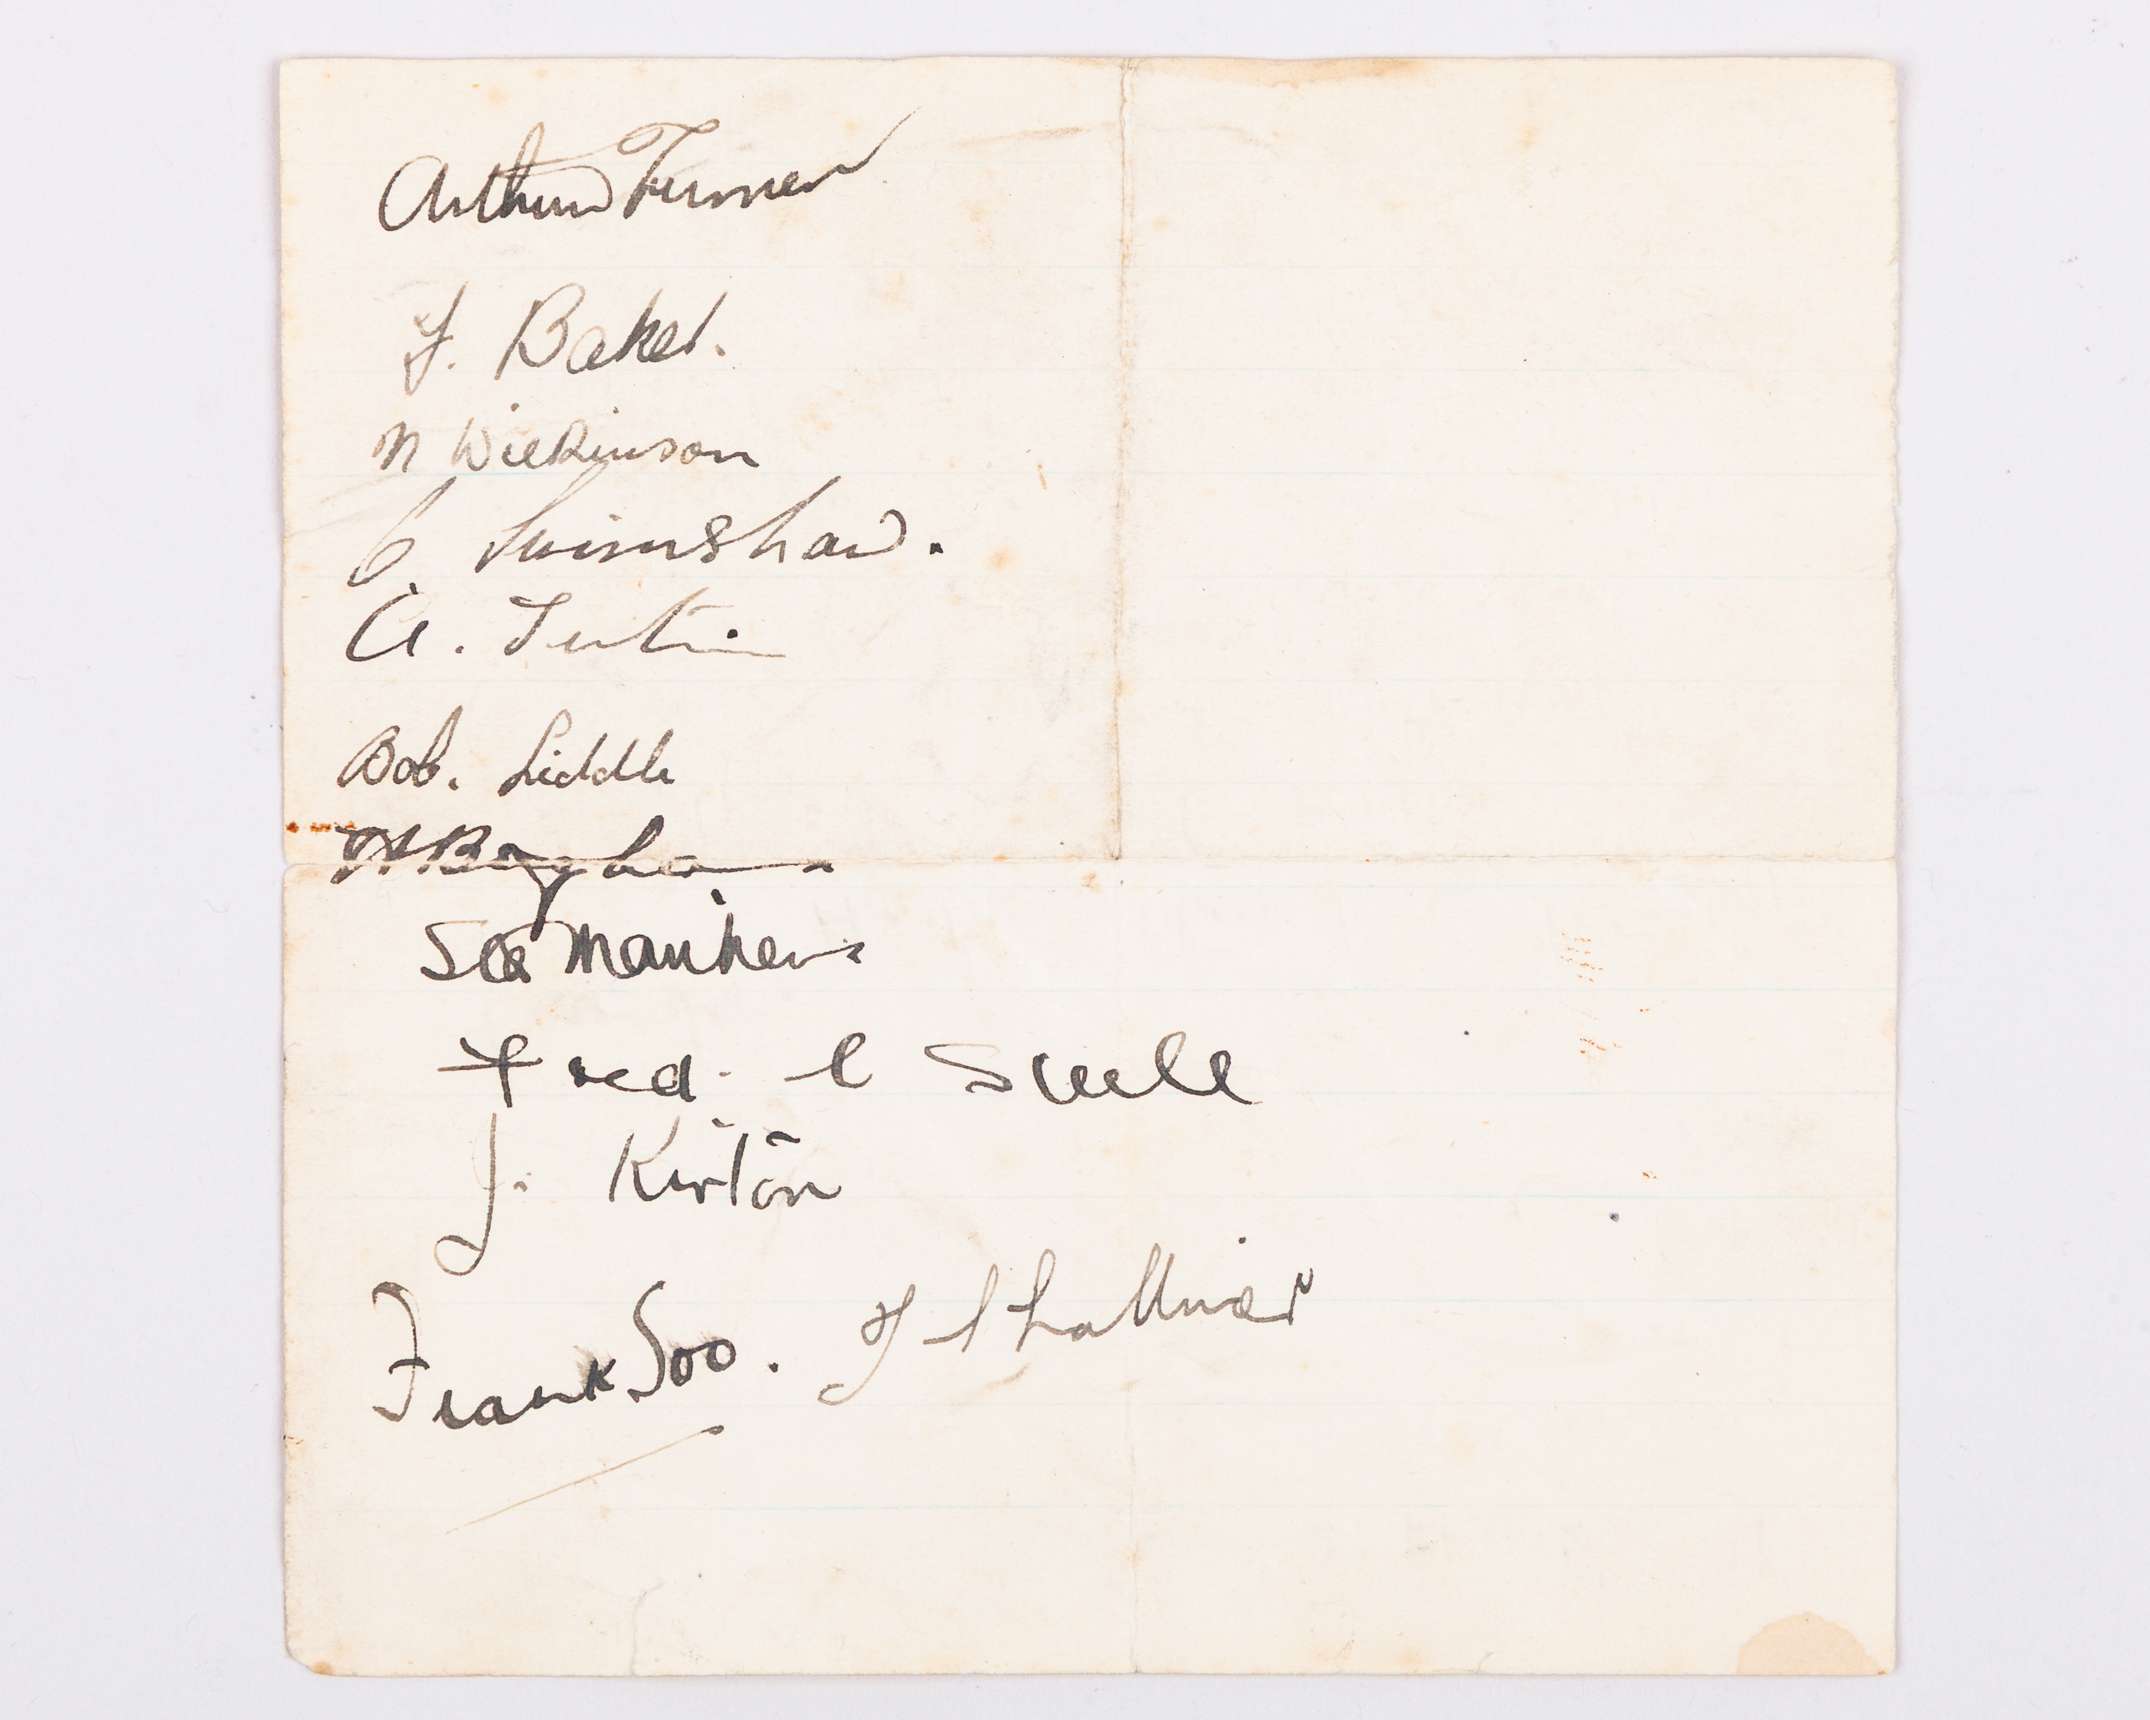 Arthur Turner
F. Baker.
N Wilkinson
C. Scrimshaw.
A. Tutin
Bob. Liddle
Stan Matthews
Fred. C Steele
J. Kirton
Frank Soo.